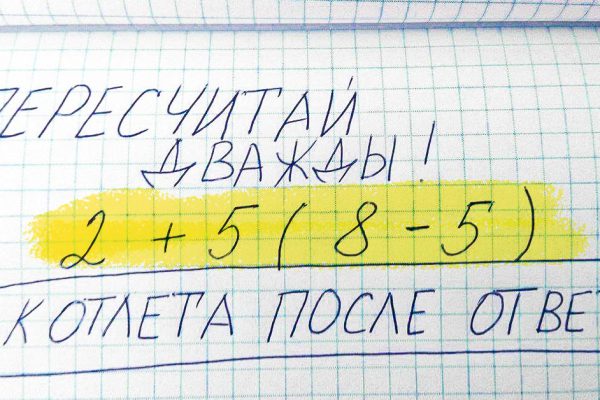 ПЕРЕСЧИТАЙ
ДВАЖДЫ!
2 + 5 ( 8 - 5 )
КОТЛЕТА ПОСЛЕ ОТВЕТ